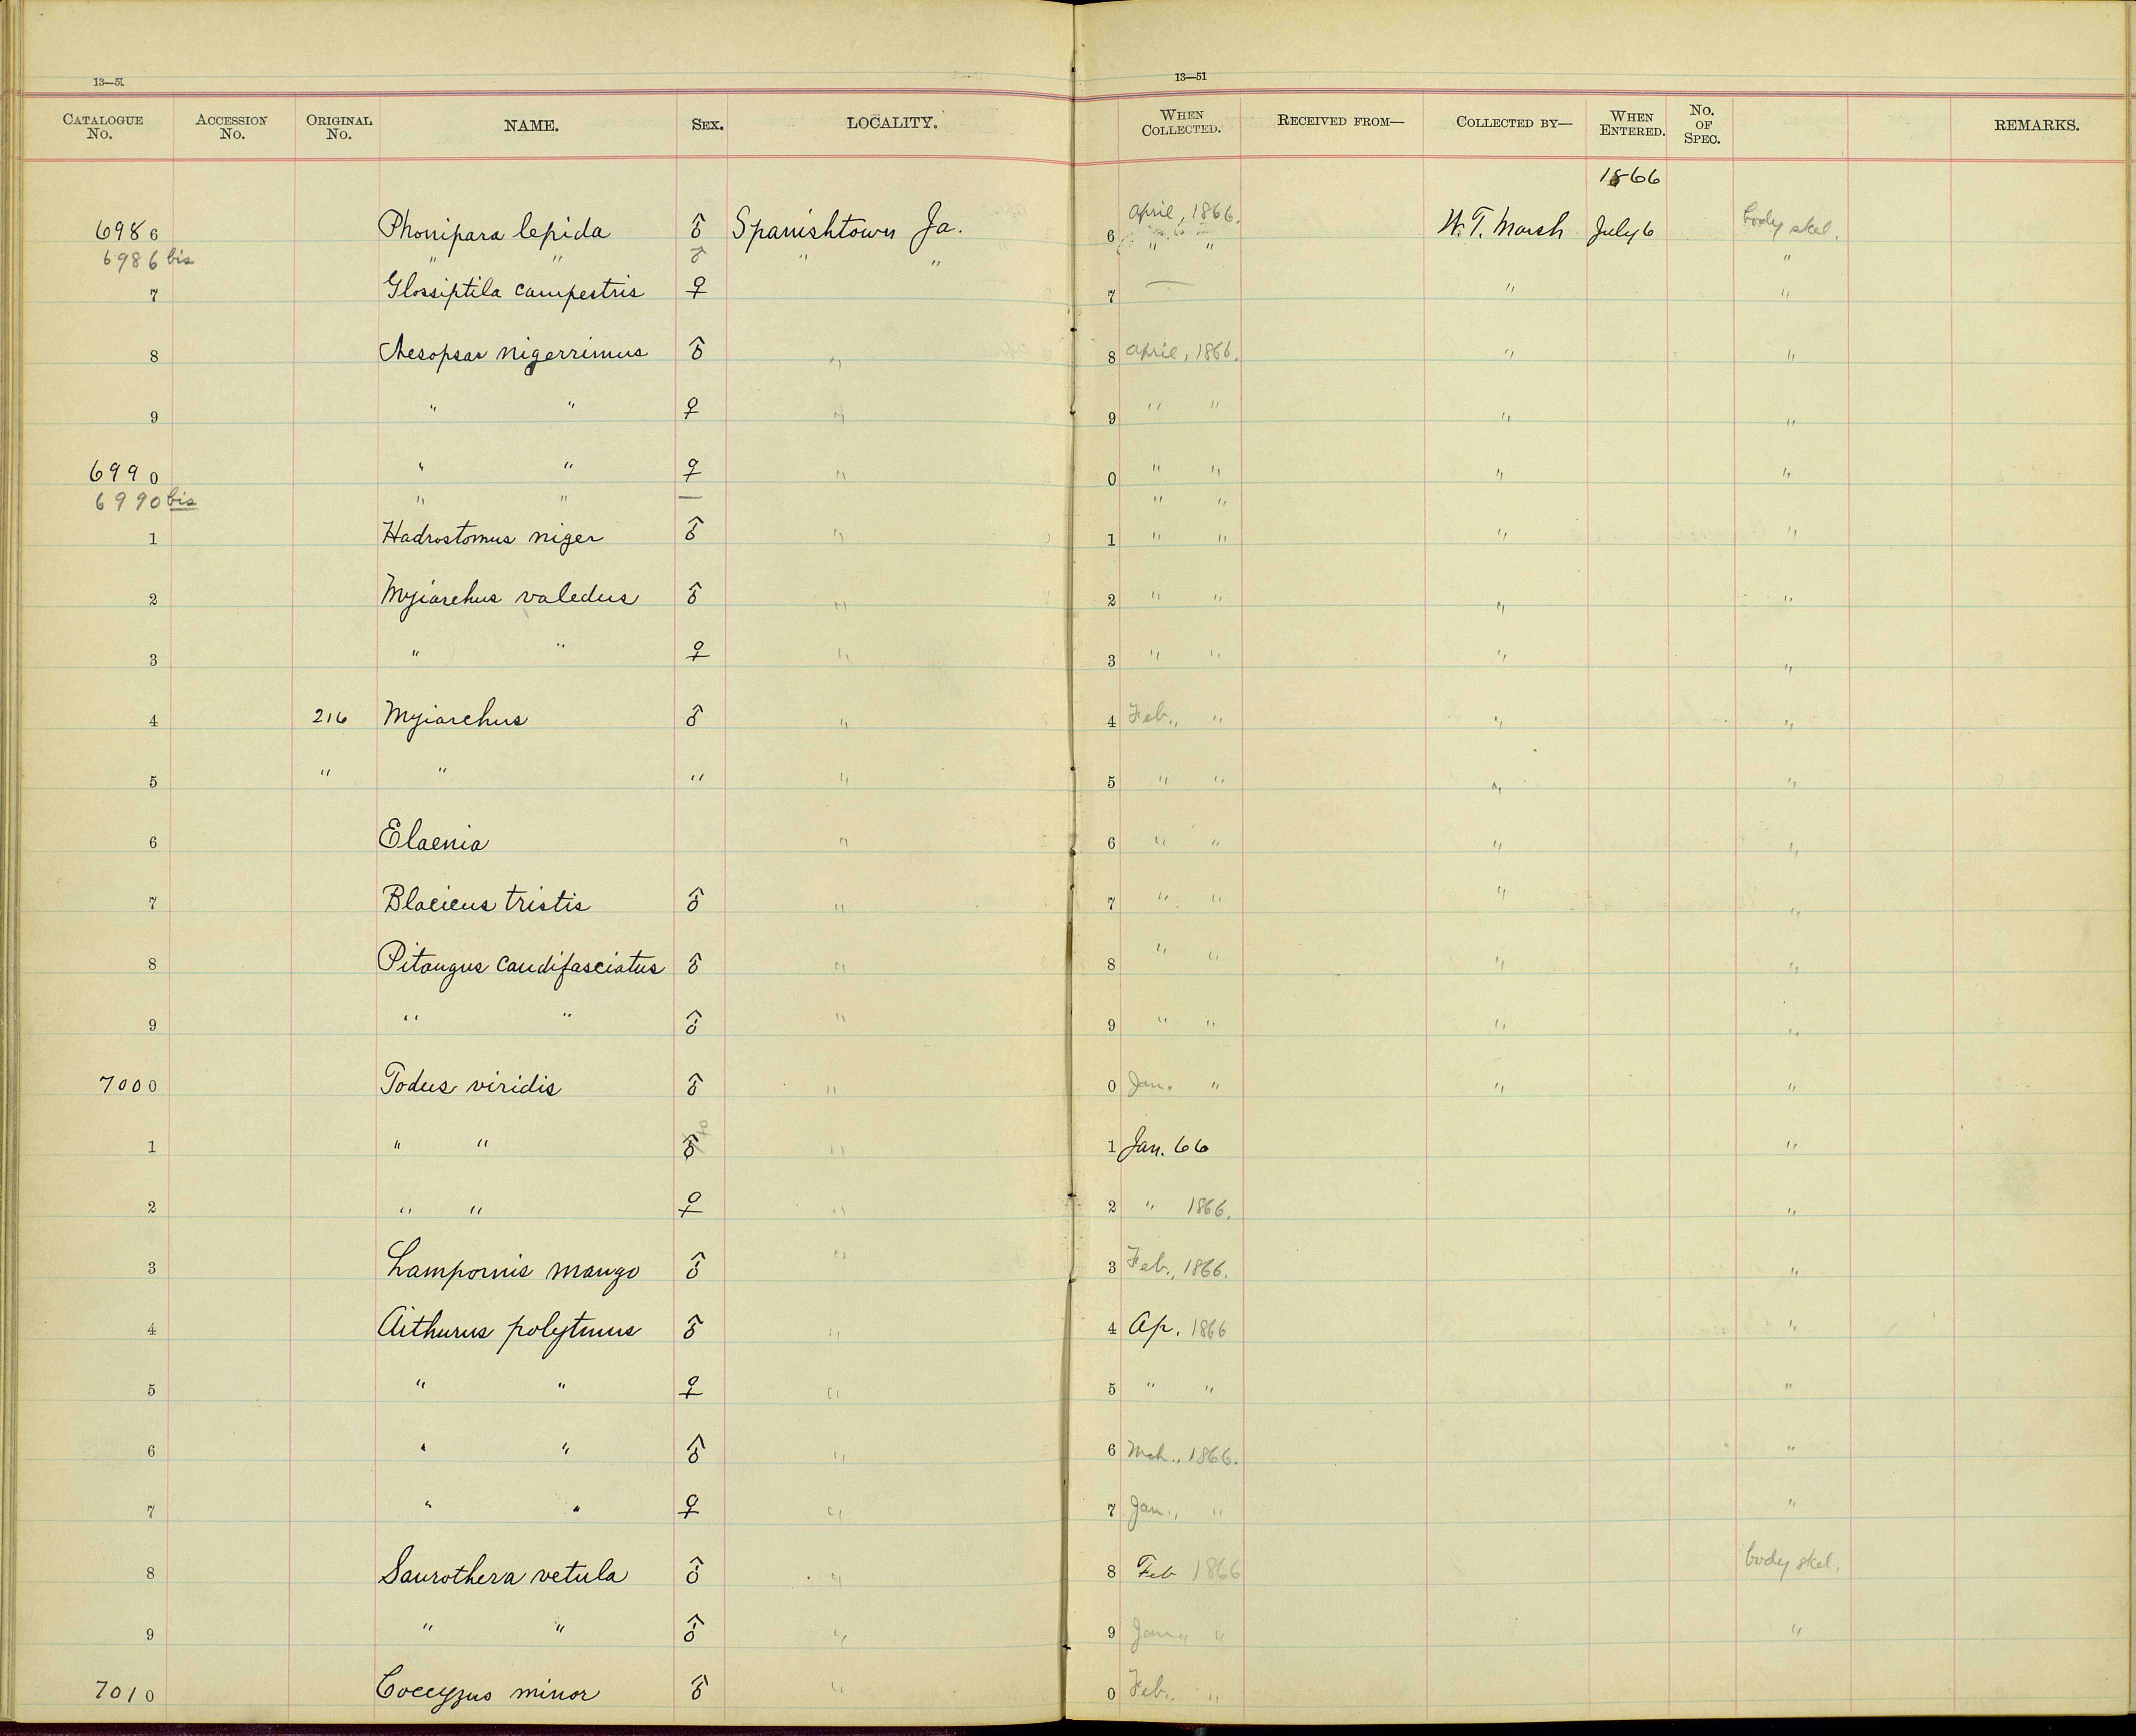 13—51 13—51
CATALOGUE No. ACCESSION No. ORIGINAL No. NAME. SEX. LOCALITY. WHEN COLLECTED. RECEIVED FROM— COLLECTED BY— WHEN ENTERED. No. OF SPEC. REMARKS.
1866
6986 Phonipara lepida ♂ Spanishtown Ja. 6 April, 1866. W. T. March July 6 body skel.
6986 bis " " ♂ " " " " "
7 Glossiptila campestris ♀ 7 — " "
8 Aesopsar nigerrimus ♂ " 8 April, 1866. " "
9 " " ♀ " 9 " " " "
6990 " " ♀ " 0 " " " "
6990 bis " " — " "
1 Hadrostomus niger ♂ " 1 " " " "
2 Myiarchus valedus ♂ " 2 " " " "
3 " " ♀ " 3 " " " "
4 216 Myiarchus ♂ " 4 Feb., " " "
5 " " " " 5 " " " "
6 Elaenia " 6 " " " "
7 Blacicus tristis ♂ " 7 " " " "
8 Pitangus caudifasciatus ♂ " 8 " " " "
9 " " ♂ " 9 " " " "
7000 Todus viridis ♂ " 0 Jan. " " "
1 " " ♂ ♀ " 1 Jan. 66 "
2 " " ♀ " 2 " 1866. "
3 Lampornis mango ♂ " 3 Feb., 1866. "
4 Aithurus polytmus ♂ " 4 Ap. 1866 "
5 " " ♀ " 5 " " "
6 " " ♂ " 6 Mch., 1866. "
7 " " ♀ " 7 Jan., " "
8 Saurothera vetula ♂ " 8 Feb 1866 body skel.
9 " " ♂ " 9 " "
7010 Coccyzus minor ♂ " 0 Feb. "